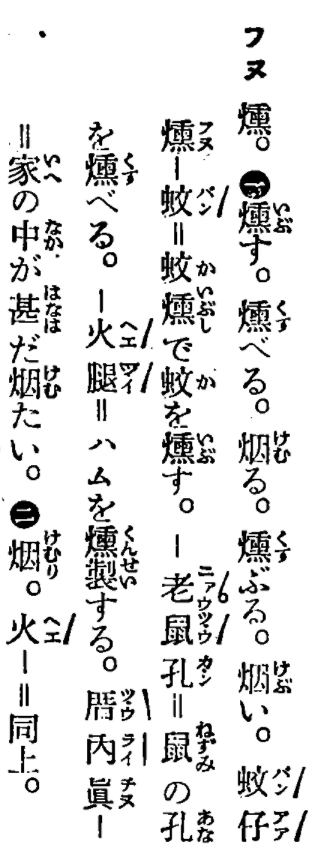 フヌ 燻。㊀燻す。燻べる。烟る。燻ぶる。烟い。蚊仔
燻―蚊=蚊燻で蚊を燻す。―老鼠孔=鼠の孔
を燻べる。―火腿=ハムを燻製する。厝內眞―
=家の中が甚だ烟たい。㊁烟。火―=同上。